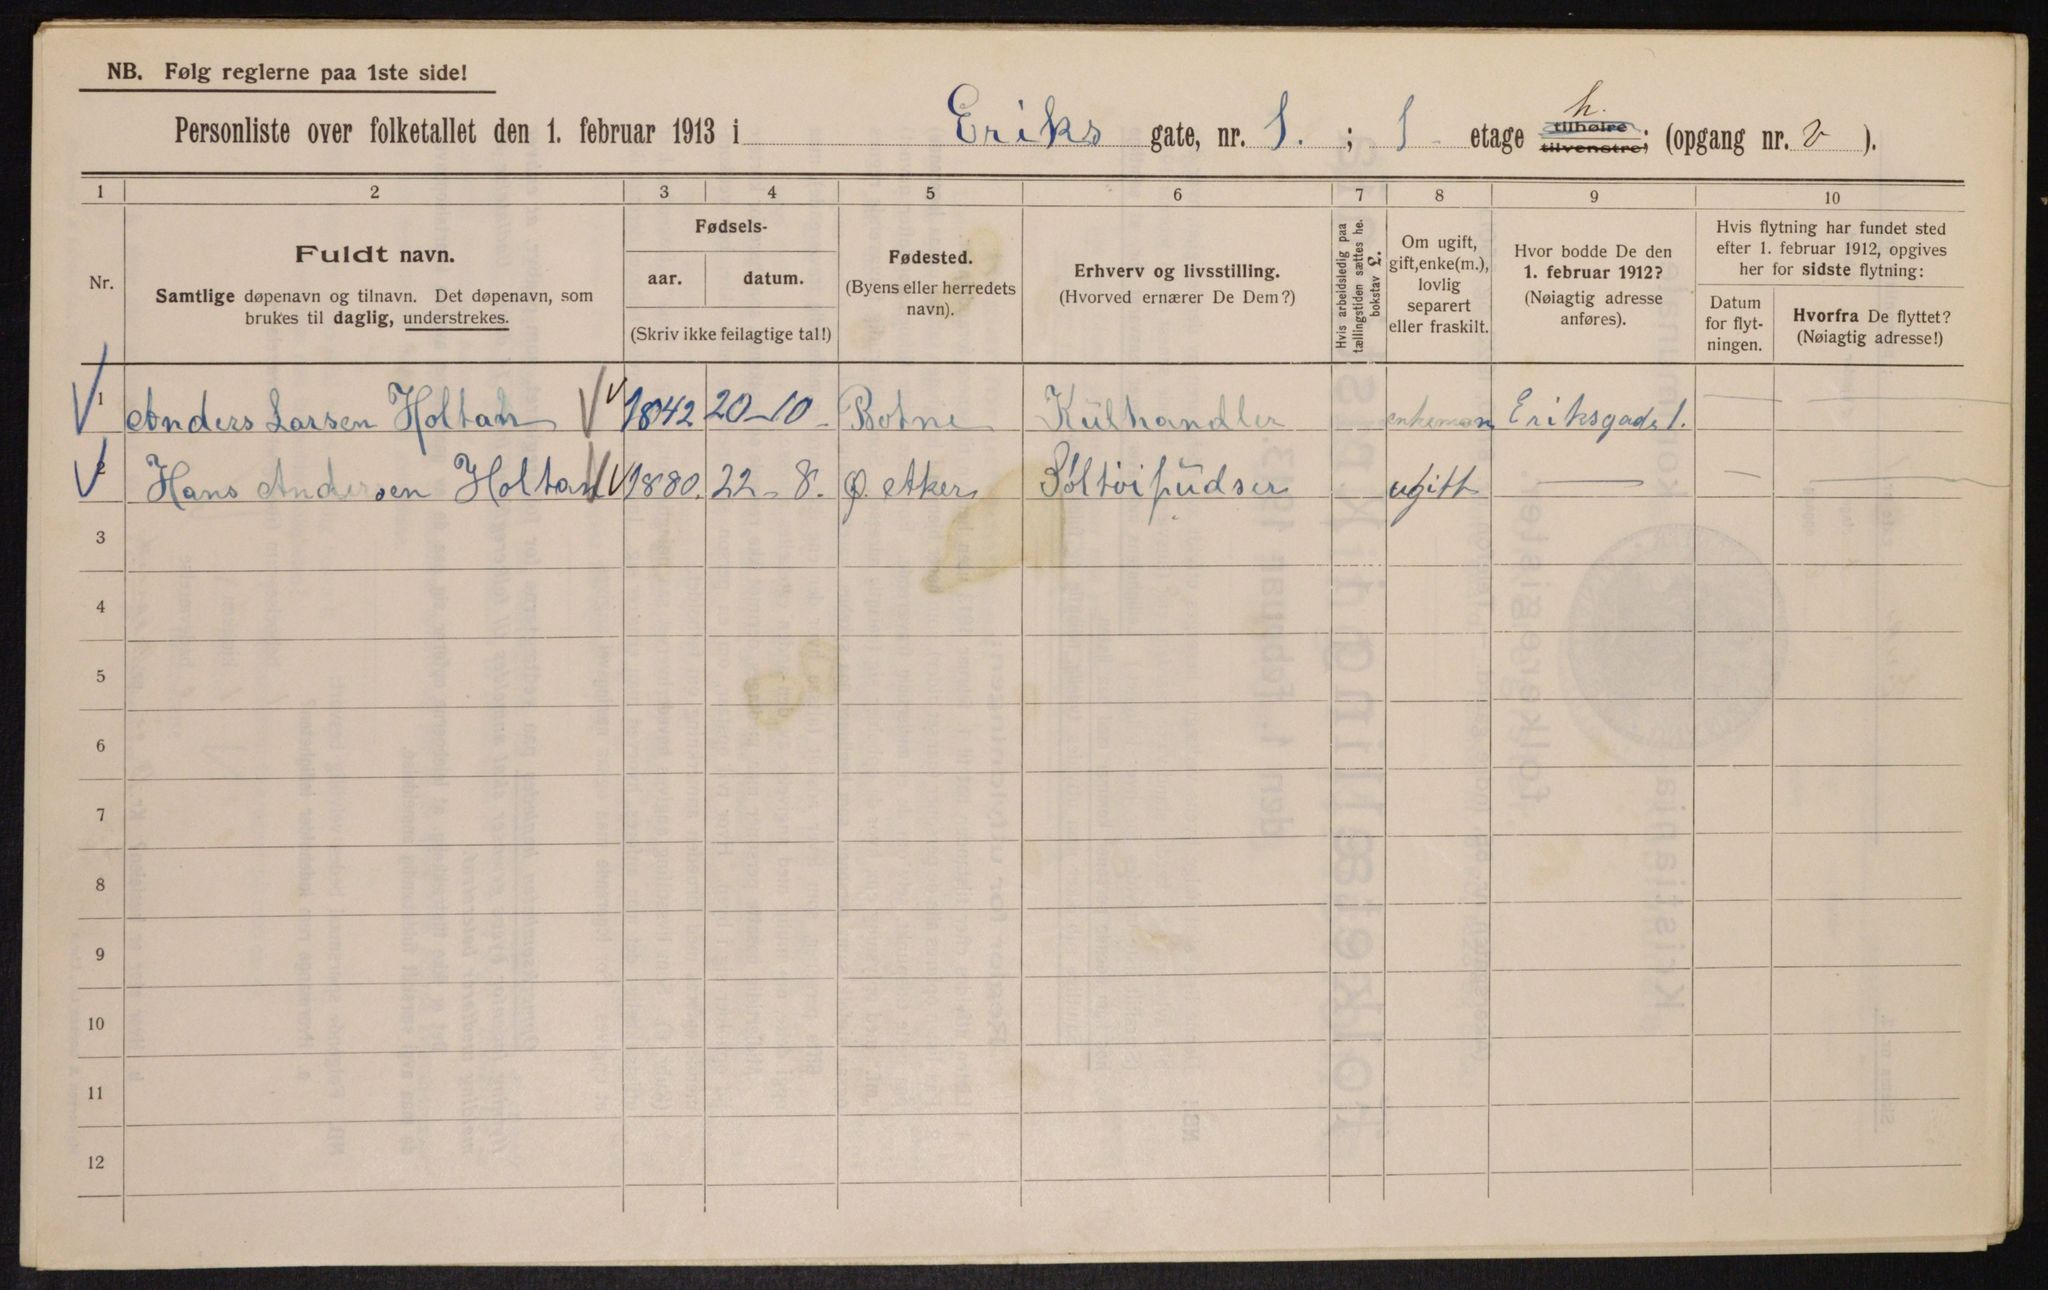 NB. Følg reglerne paa 1ste side!
Personliste over folketallet den 1. februar 1913 i Eriks gate, nr. 1. ; 1 etage h. tilhøire tilvenstre; (opgang nr. v ).
1 2 3 4 5 6 7 8 9 10
Nr.
Fuldt navn.
Samtlige døpenavn og tilnavn. Det døpenavn, som
brukes til daglig, understrekes.
Fødsels-
aar. datum.
(Skriv ikke feilagtige tal!)
Fødested.
(Byens eller herredets
navn).
Erhverv og livsstilling.
(Hvorved ernærer De Dem?)
Hvis arbeidsledig paa
tællingstiden sættes he.
bokstav L.
Om ugift,
gift, enke(m.),
lovlig
separert
eller fraskilt.
Hvor bodde De den
1. februar 1912?
(Nøiagtig adresse
anføres).
Hvis flytning har fundet sted
efter 1. februar 1912, opgives
her for sidste flytning:
Datum
for flyt-
ningen.
Hvorfra De flyttet?
(Nøiagtig adresse!)
1 Anders Larsen Holtan 1842 20-10 Botne Kulhandler enkeman Eriksgade 1. —
Hans Andersen Holtan 1880. 22-8. Ø. Aker ugift — —
3
4
5
6
7
8
9
10
11
12